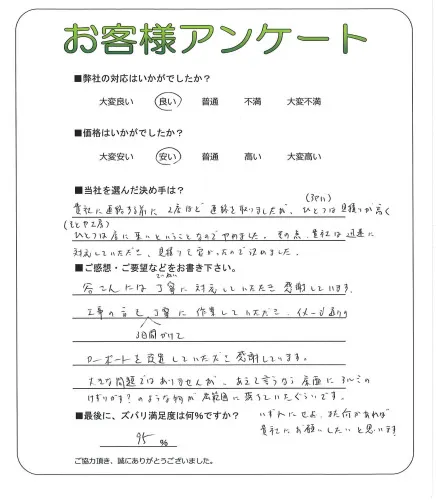 お客様アンケート
■弊社の対応はいかがでしたか?
大変良い 良い 普通 不満 大変不満
■価格はいかがでしたか?
大変安い 安い 普通 高い 大変高い
■当社を選んだ決め手は?
貴社に連絡する前に、2店ほど連絡を取りましたが、ひとつは見積りが高く
ひとつは店に来いということなのでやめました。その点、貴社は迅速に
対応していただき、見積りも安かったので決めました。
■ご感想・ご要望などをお書き下さい。
さんには丁寧に対応していただき感謝しています。
工事の方も丁寧に作業していただき、イメージ通りの
3日間かけて
カーポートを設置していただき感謝しています。
大きな問題ではありませんが、あえて言うなら屋面にアルミの
けずりかす?のような物が広範囲に落ちていたぐらいです。
■最後に、ズバリ満足度は何%ですか?
いずれにせよ、また何かあれば
貴社にお願いしたいと思います!
95 %
ご協力頂き、誠にありがとうございました。